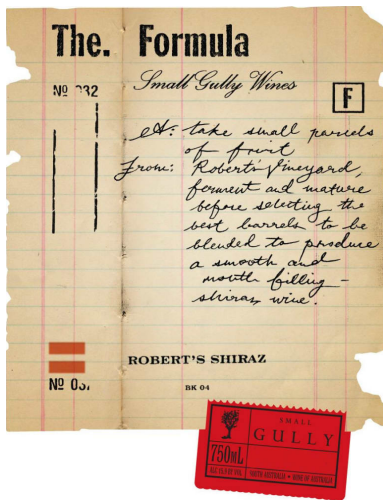 The. Formula
Small Gully Wines
Nº 032
F
take small parcels
of fruit
From: Robert's Vineyard,
ferment and mature
before selecting the
best barrels to be
blended to produce
a smooth and
mouth filling -
shiraz wine.
ROBERT'S SHIRAZ
Nº
BK 04
SMALL
GULLY
750ML
SOUTH AUSTRALIA • WINE OF AUSTRALIA